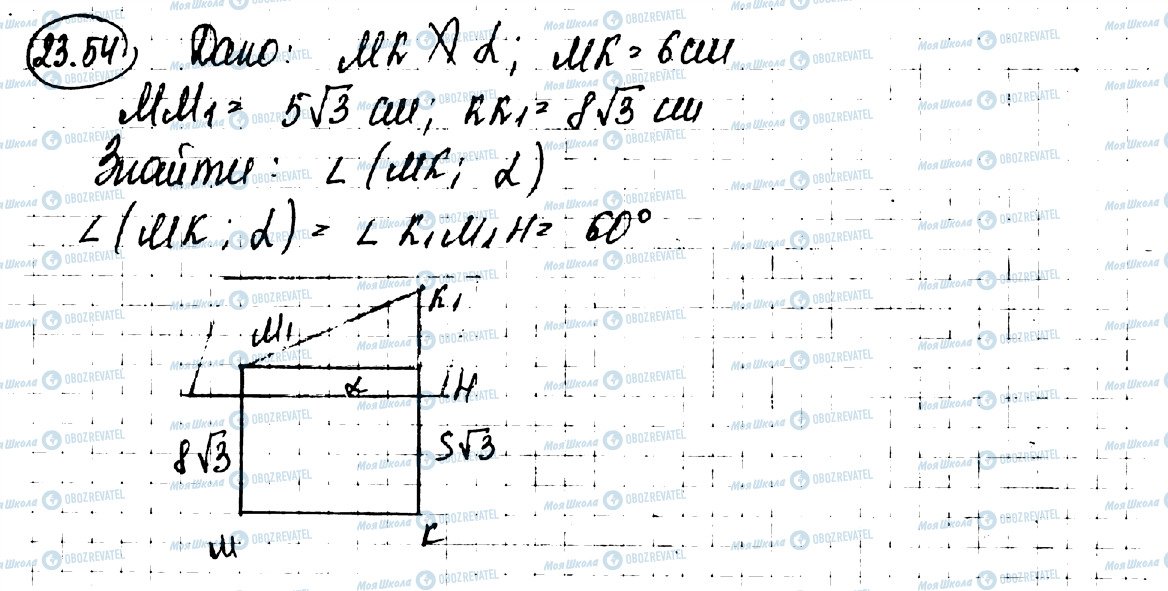 23.54) Дано: MK ∦ α; MK = 6 см
MM₁ = 5√3 см; KK₁ = 8√3 см
Знайти: ∠(MK; α)
∠(MK; α) = ∠K₁M₁H = 60°
K₁
M₁
α
H
8√3
5√3
M
K
МояШкола OBOZREVATEL